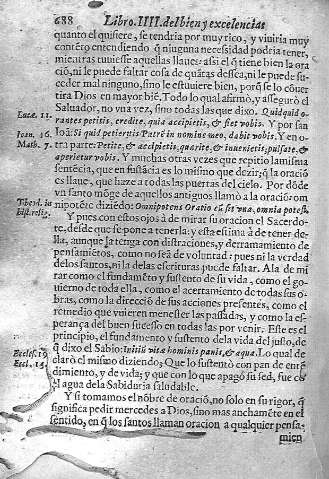 688 Libro.IIII.del bien y excelencias
quanto el quisiere, se tendria por muy rico, y viuiria muy
contẽto entendiendo q̃ ninguna necessidad podria tener,
mientras tuuiesse aquellas llaues: assi el q̃ tiene bien la ora
ciõ, ni le puede faltar cosa de quãtas dessea, ni le puede su-
ceder mal ninguno, sino le estuuiere bien, porq̃ se lo cõuer
tira Dios en mayor biẽ. Todo lo qual afirmò, y assegurò el
Saluador, no vna vez, sino todas las que dixo. Quidquid o-
Lucæ. 11. rantes petitis, credite, quia accipietis, & fiet vobis. Y por san
Ioan. 16. Ioã: Si quid petieritis Patrẽ in nomine meo, dabit vobis. Y en o-
Math. 7. tra parte: Petite, & accipietis, quærite, & inuenietis, pulsate, &
aperietur vobis. Y muchas otras vezes que repitio la misma
sentẽcia, que en sustãcia es lo mismo que dezir, q̃ la oraciõ
es llaue, que haze a todas las puertas del cielo. Por dõde
vn santo mõge de aquellos antiguos llamo a la oraciõ: om
nipotẽte diziẽdo: Omnipotens Oratio cũ sit vna, omnia potest,
hist. relig.
Y pues con estos ojos à de mirar su oracion el Sacerdo-
te, desde que se pone a tenerla: y esta estima à de tener de-
lla, aunque la tenga con distraciones, y derramamiento de
pensamiẽtos, como no sea de voluntad: pues ni la verdad
de los santos, ni la de las escrituras puede faltar. Ala de mi
rar como el fundamẽto y sustento de su vida, como el go-
uierno de toda ella, como el acertamiento de todas sus o-
bras, como la direciõ de sus acciones presentes, como el
remedio que vuieren menester las passadas, y como la es-
perança del buen sucesso en todas las por venir. Este es el
principio, el fundamento y sustento de la vida del justo, de
Eccles. 29 q̃ dixo el Sabio: Initiũ vitæ hominis panis, & aqua. Lo qual de
Eccl. 15. clarò el mismo diziendo; Que lo sustentò con pan de entẽ
dimiento, y de vida; y que con lo que apagò su sed, fue cõ
el agua de la Sabiduria saludable.
Y si tomamos el nõbre de oraciõ, no solo en su rigor, q̃
significa pedir mercedes a Dios, sino mas anchamẽte en el
sentido, en q̃ los santos llaman oracion a qualquier pensa-
mien